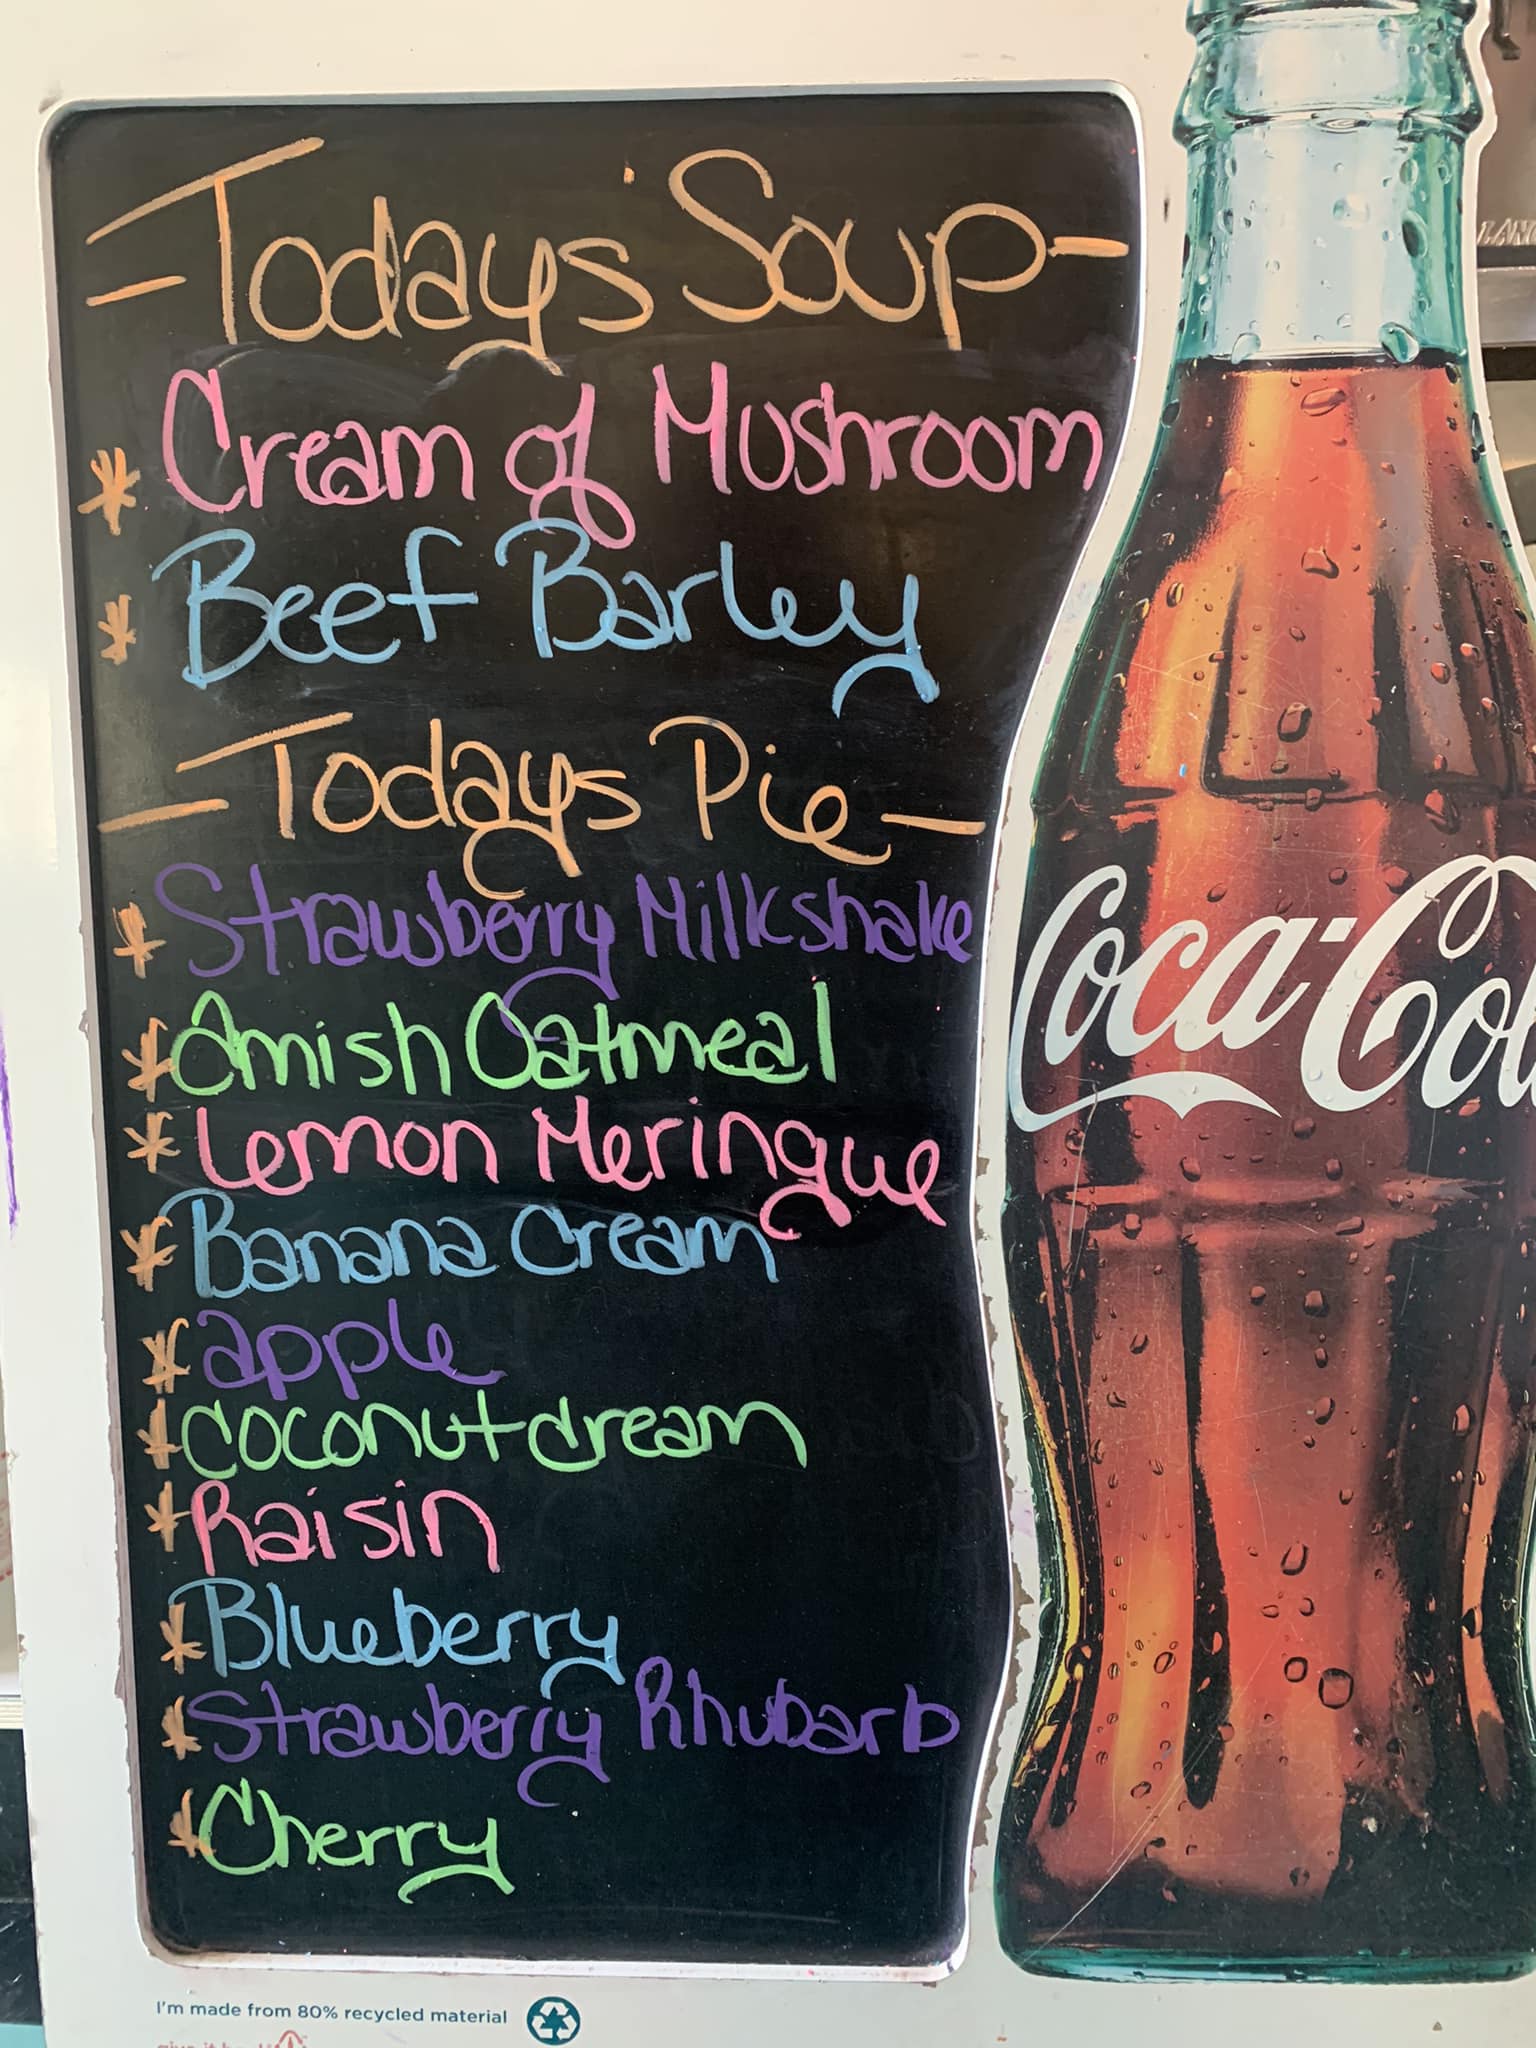 -Today's Soup-
* Cream of Mushroom
* Beef Barley
-Todays Pie-
* Strawberry Milkshake
* Amish Oatmeal
* Lemon Meringue
* Banana Cream
* apple
* coconut cream
* Raisin
* Blueberry
* Strawberry Rhubarb
* Cherry
Coca-Cola
I'm made from 80% recycled material